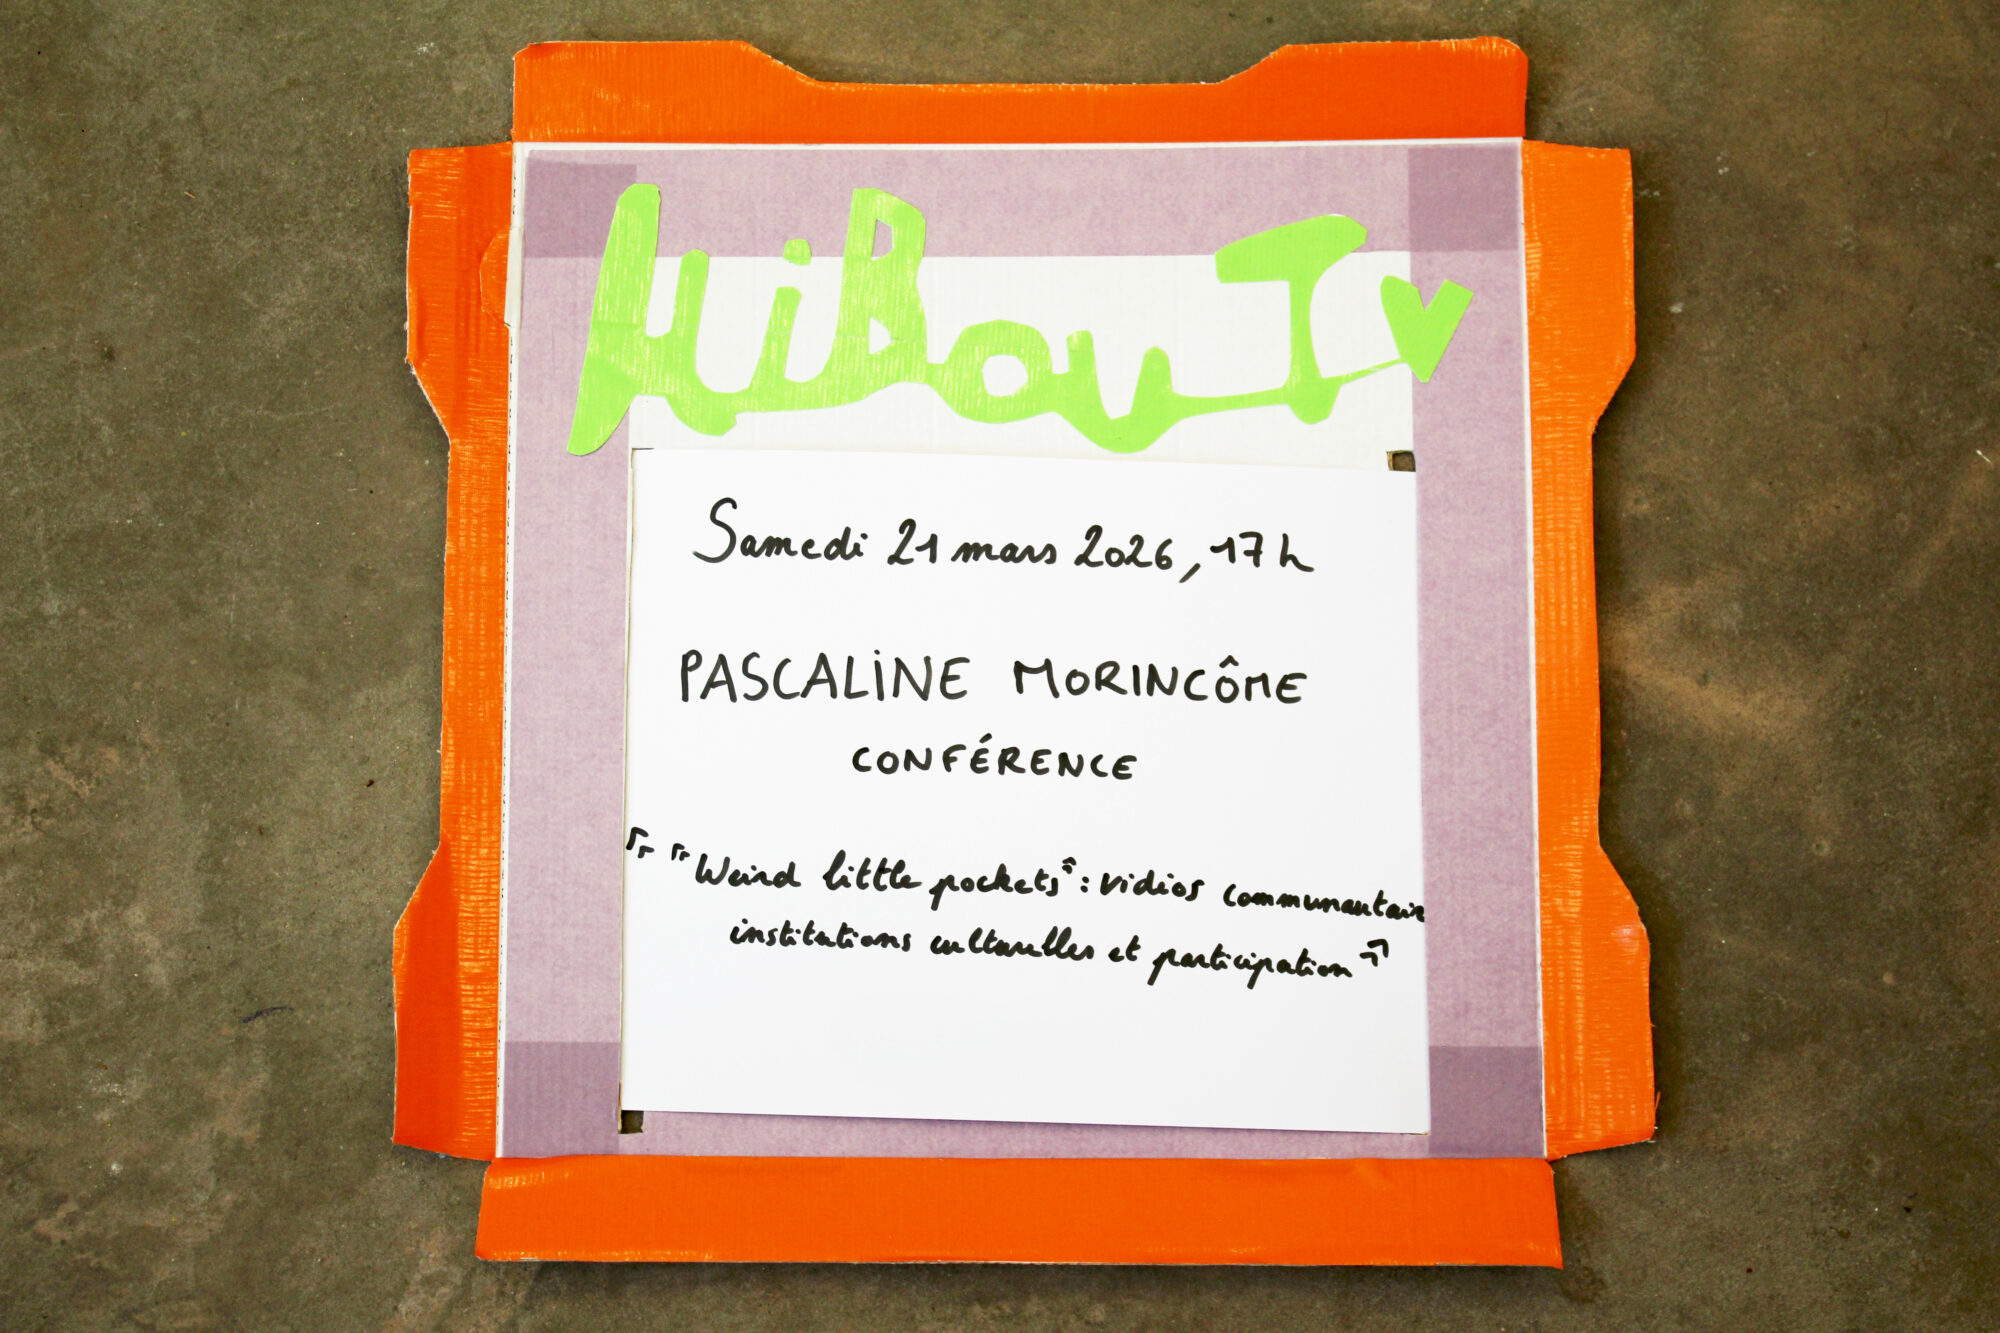 HiBou TV
Samedi 21 mars 2026, 17h
PASCALINE MORINCÔME
CONFÉRENCE
" "Weird little pockets" : vidéos communautaire
institutions culturelles et participation "